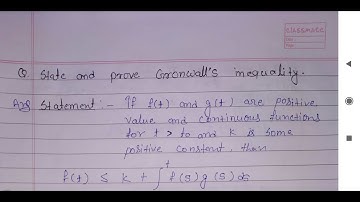 CLASSMATE
Q. State and prove Gronwall's inequality.
Ans Statement :- If f(t) and g(t) are positive
value and continuous functions
for t > to and k is some
positive constant, then
f(t) ≤ k + ∫ᵗ f(s) g(s) ds